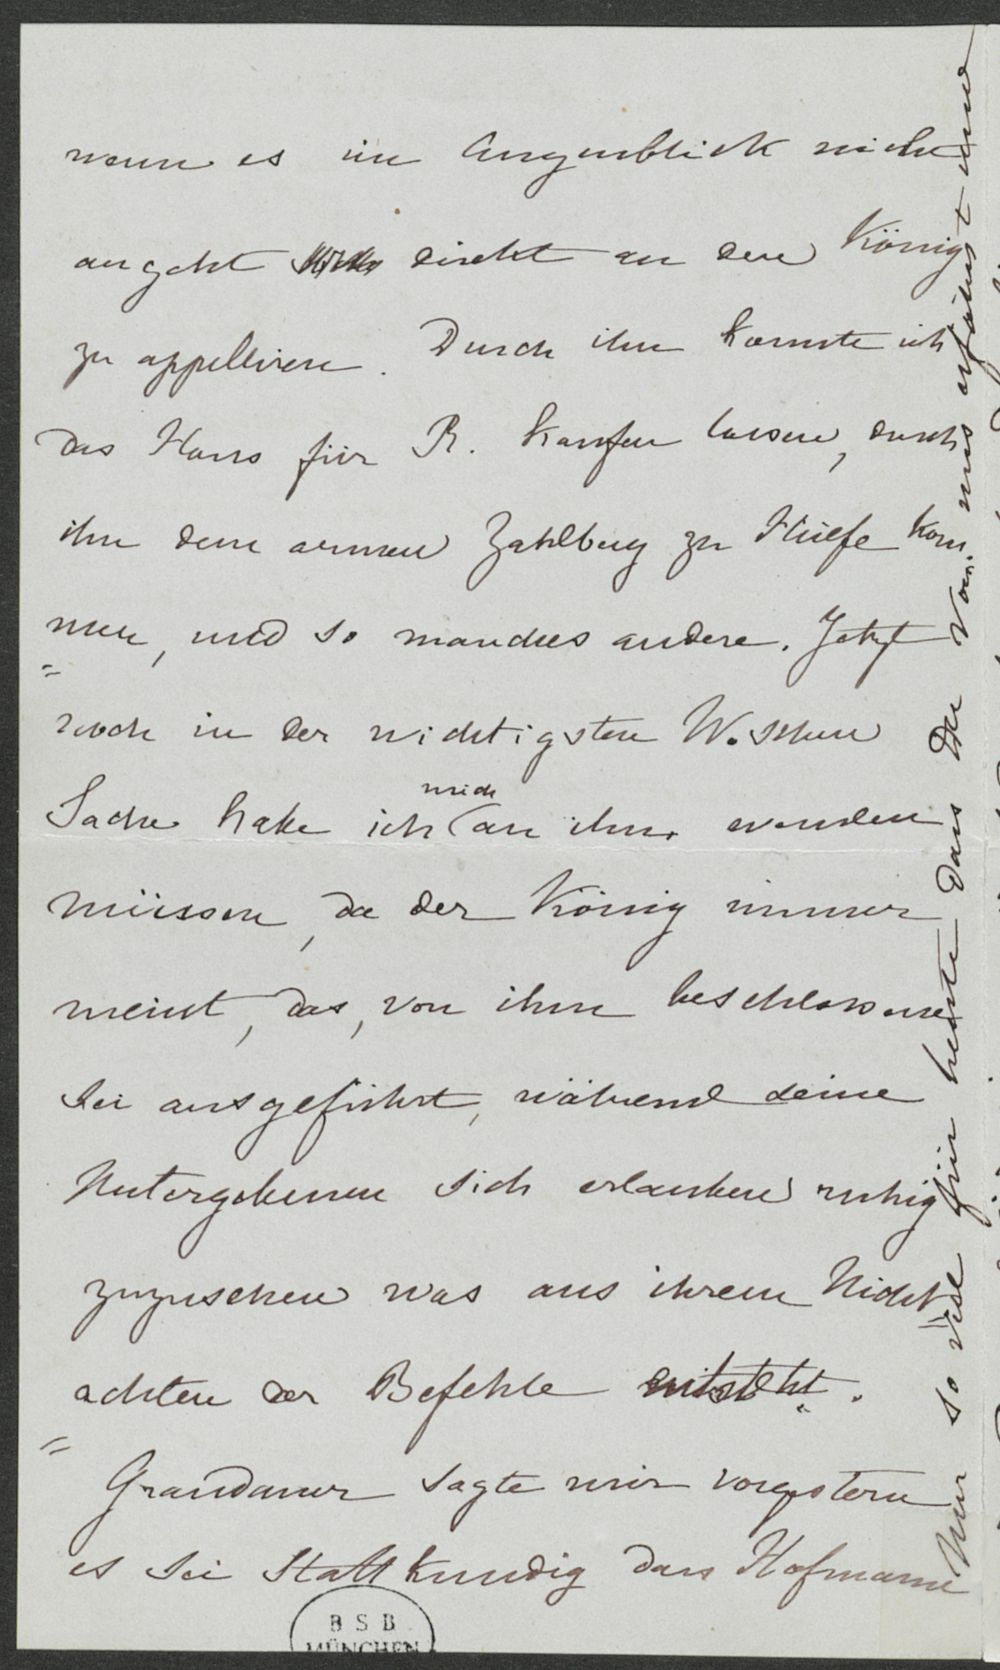 wenn es im Augenblick nicht
angeht direkt an den König
zu appelliren. Durch ihn konnte ich
das Haus für R. kaufen lassen, durch
ihn dem armen Zahlberg zu Hülfe kom
men, und so manches andere. Jetzt
noch in der wichtigsten W.schen
Sache habe ich mich an ihn wenden
müssen, da der König immer
meint, das, von ihm beschlossene
sei ausgeführt, während seine
Untergebenen sich erlauben ruhig
zuzusehen was aus ihrem Nicht=
achten der Befehle entsteht.
Grandauer sagte mir vorgestern
es sei Stattkundig dass Hofmann
Nur so viel für heute dass Du von mir erfährst und
B S B
MÜNCHEN